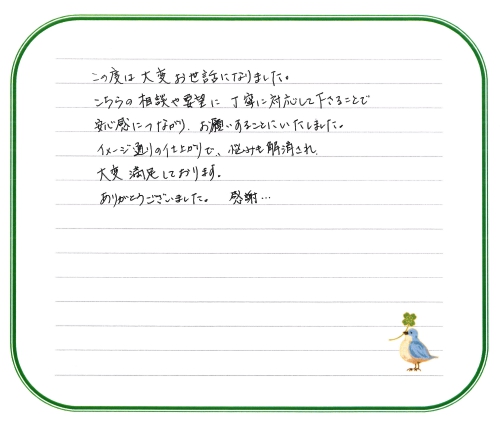 この度は大変お世話になりました。
こちらの相談や要望に丁寧に対応して下さることで
安心感につながり、お願いすることにいたしました。
イメージ通りの仕上がりで、悩みも解消され、
大変満足しております。
ありがとうございました。 感謝…